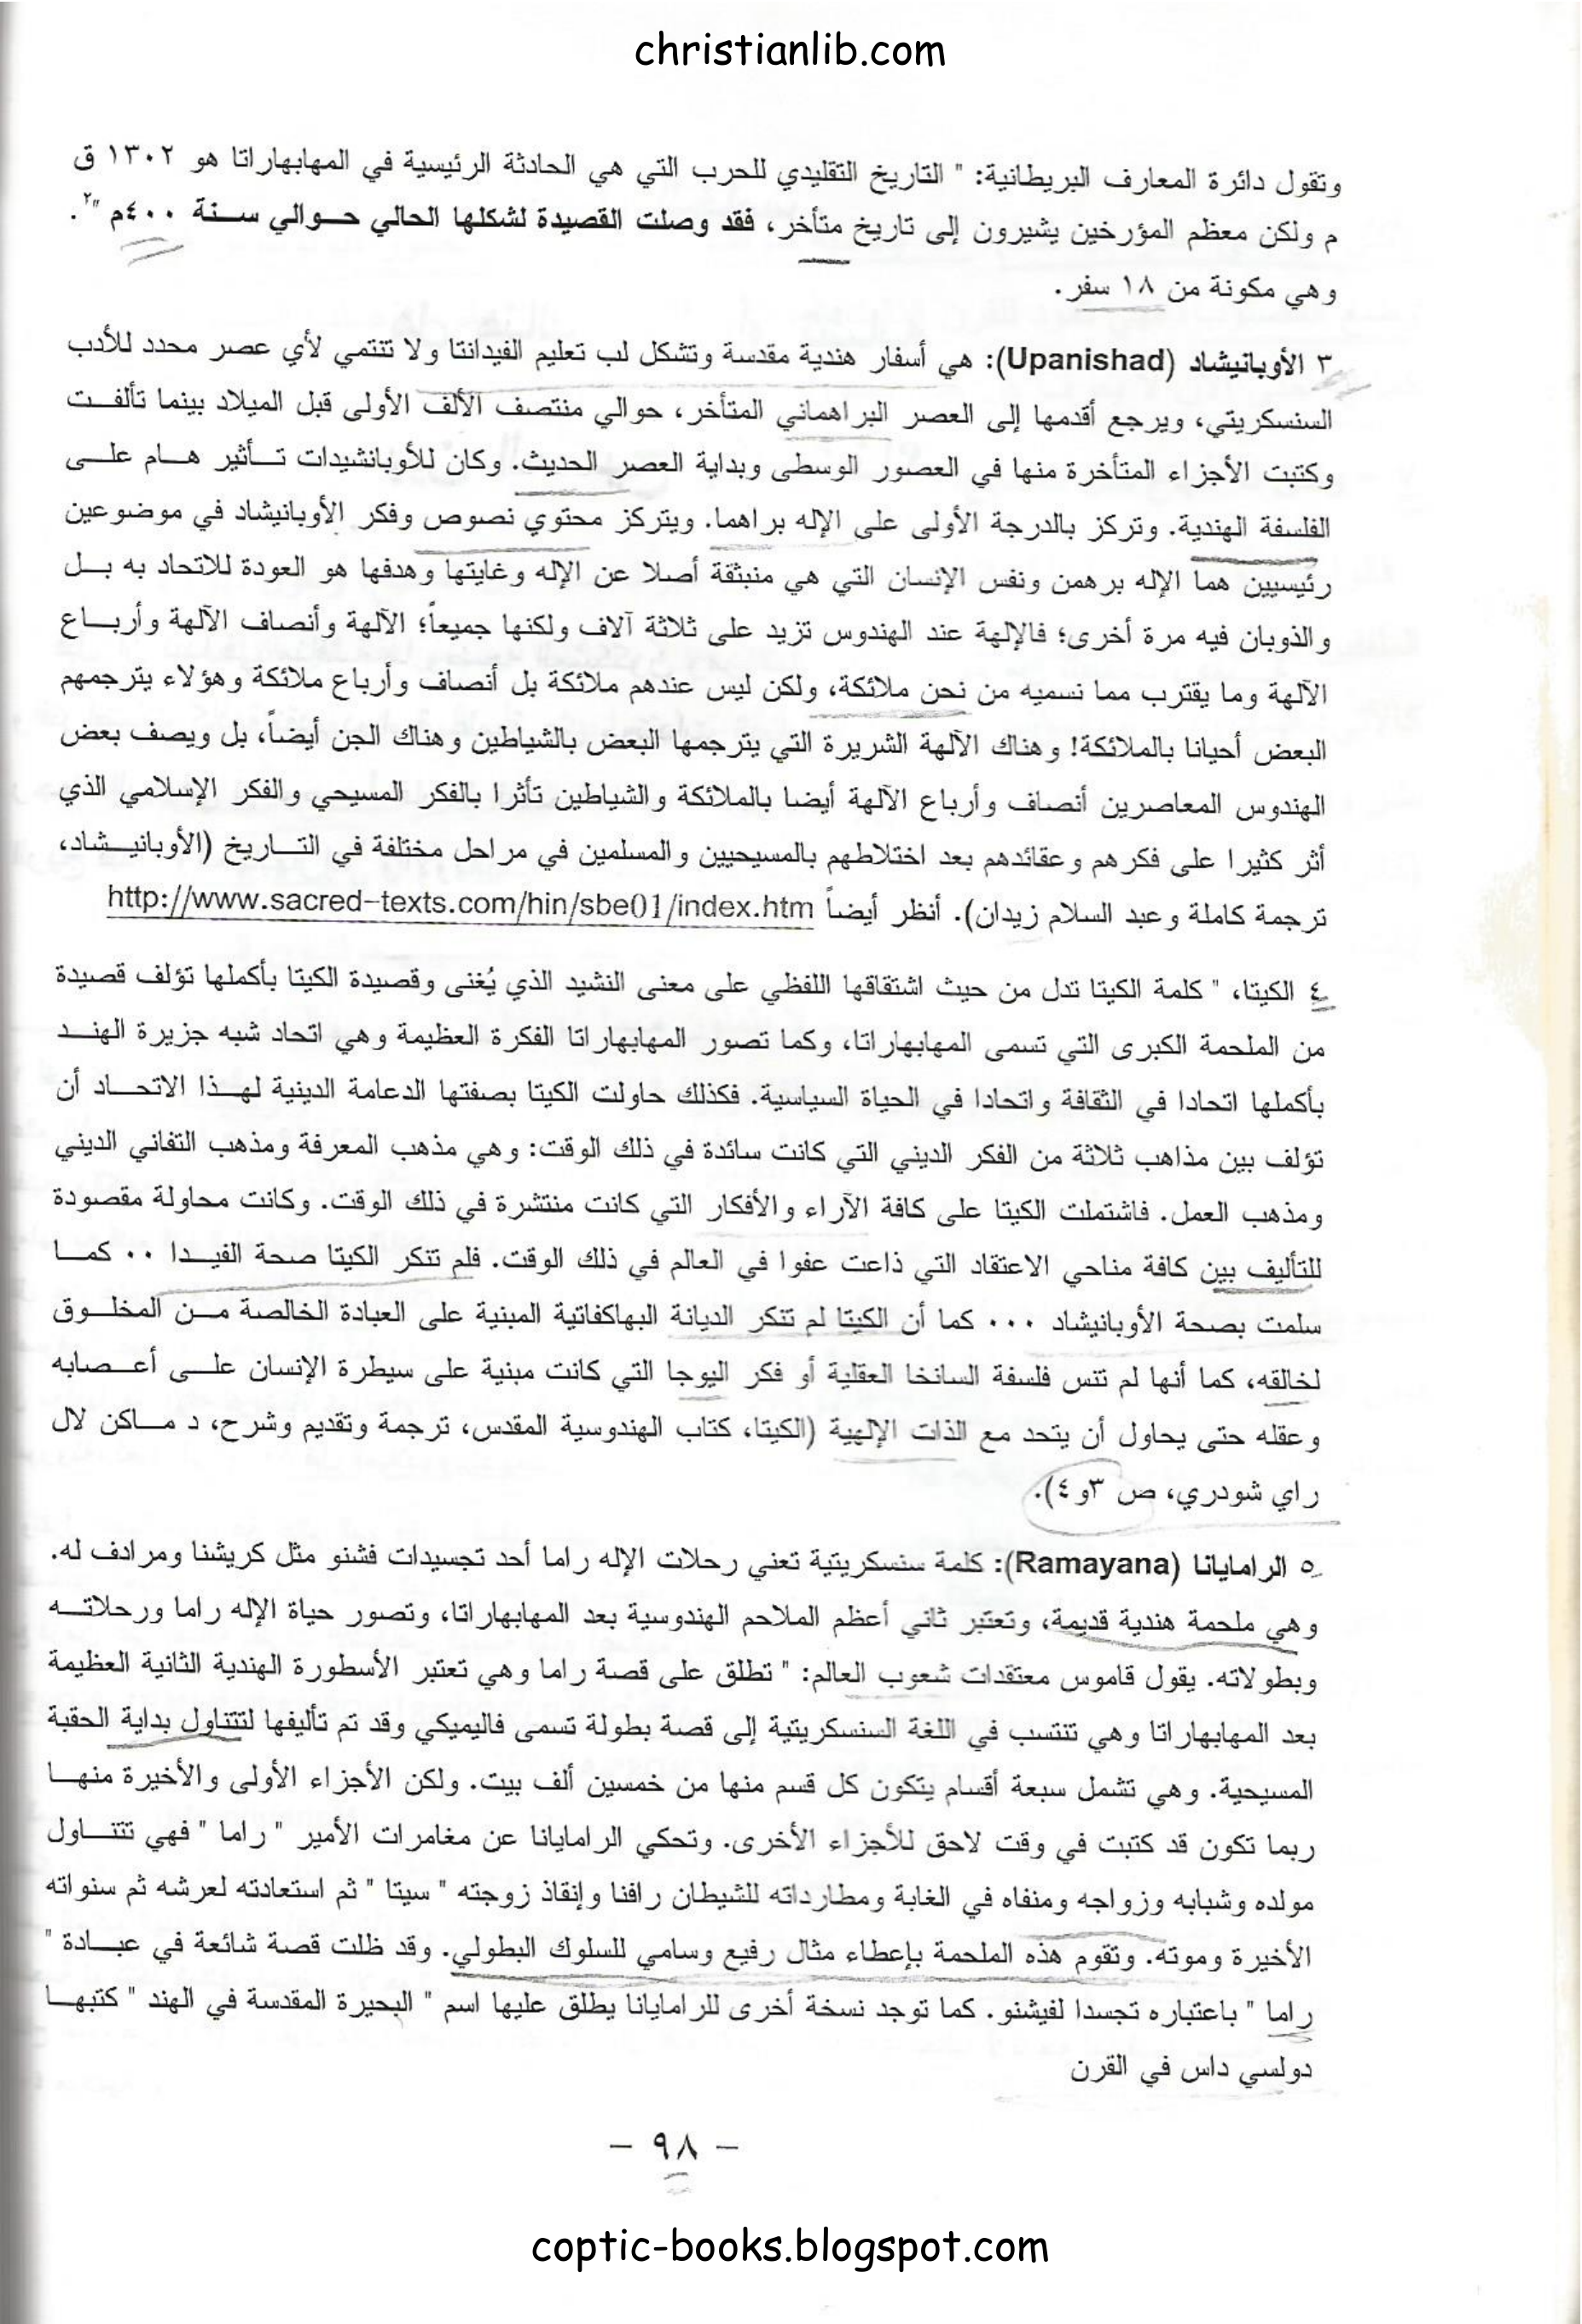 christianlib.com
وتقول دائرة المعارف البريطانية: " التاريخ التقليدي للحرب التي هي الحادثة الرئيسية في المهابهاراتا هو ١٣٠٢ ق
م ولكن معظم المؤرخين يشيرون إلى تاريخ متأخر، فقد وصلت القصيدة لشكلها الحالي حوالي سنة ٤٠٠م "٢.
وهي مكونة من ١٨ سفر.
٣ الأوبانيشاد (Upanishad): هي أسفار هندية مقدسة وتشكل لب تعليم الفيدانتا ولا تنتمي لأي عصر محدد للأدب
السنسكريتي، ويرجع أقدمها إلى العصر البراهماني المتأخر، حوالي منتصف الألف الأولى قبل الميلاد بينما تألفت
وكتبت الأجزاء المتأخرة منها في العصور الوسطى وبداية العصر الحديث. وكان للأوبانشيدات تأثير هام على
الفلسفة الهندية. وتركز بالدرجة الأولى على الإله براهما. ويتركز محتوي نصوص وفكر الأوبانيشاد في موضوعين
رئيسيين هما الإله برهمن ونفس الإنسان التي هي منبثقة أصلا عن الإله وغايتها وهدفها هو العودة للاتحاد به بل
والذوبان فيه مرة أخرى؛ فالإلهة عند الهندوس تزيد على ثلاثة آلاف ولكنها جميعاً؛ الآلهة وأنصاف الآلهة وأرباع
الآلهة وما يقترب مما نسميه من نحن ملائكة، ولكن ليس عندهم ملائكة بل أنصاف وأرباع ملائكة وهؤلاء يترجمهم
البعض أحيانا بالملائكة! وهناك الآلهة الشريرة التي يترجمها البعض بالشياطين وهناك الجن أيضاً، بل ويصف بعض
الهندوس المعاصرين أنصاف وأرباع الآلهة أيضا بالملائكة والشياطين تأثرا بالفكر المسيحي والفكر الإسلامي الذي
أثر كثيرا على فكرهم وعقائدهم بعد اختلاطهم بالمسيحيين والمسلمين في مراحل مختلفة في التاريخ (الأوبانيشاد،
ترجمة كاملة وعبد السلام زيدان). أنظر أيضاً http://www.sacred-texts.com/hin/sbe01/index.htm
٤ الكيتا، " كلمة الكيتا تدل من حيث اشتقاقها اللفظي على معنى النشيد الذي يُغنى وقصيدة الكيتا بأكملها تؤلف قصيدة
من الملحمة الكبرى التي تسمى المهابهاراتا، وكما تصور المهابهاراتا الفكرة العظيمة وهي اتحاد شبه جزيرة الهند
بأكملها اتحادا في الثقافة واتحادا في الحياة السياسية. فكذلك حاولت الكيتا بصفتها الدعامة الدينية لهذا الاتحاد أن
تؤلف بين مذاهب ثلاثة من الفكر الديني التي كانت سائدة في ذلك الوقت: وهي مذهب المعرفة ومذهب التفاني الديني
ومذهب العمل. فاشتملت الكيتا على كافة الآراء والأفكار التي كانت منتشرة في ذلك الوقت. وكانت محاولة مقصودة
للتأليف بين كافة مناحي الاعتقاد التي ذاعت عفوا في العالم في ذلك الوقت. فلم تنكر الكيتا صحة الفيدا ٠٠ كما
سلمت بصحة الأوبانيشاد ٠٠٠ كما أن الكيتا لم تنكر الديانة البهاكفاتية المبنية على العبادة الخالصة من المخلوق
لخالقه، كما أنها لم تنس فلسفة السانخا العقلية أو فكر اليوجا التي كانت مبنية على سيطرة الإنسان على أعصابه
وعقله حتى يحاول أن يتحد مع الذات الإلهية (الكيتا، كتاب الهندوسية المقدس، ترجمة وتقديم وشرح، د ماكن لال
راي شودري، ص ٣و٤).
٥ الرامايانا (Ramayana): كلمة سنسكريتية تعني رحلات الإله راما أحد تجسيدات فشنو مثل كريشنا ومرادف له.
وهي ملحمة هندية قديمة، وتعتبر ثاني أعظم الملاحم الهندوسية بعد المهابهاراتا، وتصور حياة الإله راما ورحلاته
وبطولاته. يقول قاموس معتقدات شعوب العالم: " تطلق على قصة راما وهي تعتبر الأسطورة الهندية الثانية العظيمة
بعد المهابهاراتا وهي تنتسب في اللغة السنسكريتية إلى قصة بطولة تسمى فاليميكي وقد تم تأليفها لتتناول بداية الحقبة
المسيحية. وهي تشمل سبعة أقسام يتكون كل قسم منها من خمسين ألف بيت. ولكن الأجزاء الأولى والأخيرة منها
ربما تكون قد كتبت في وقت لاحق للأجزاء الأخرى. وتحكي الرامايانا عن مغامرات الأمير " راما " فهي تتناول
مولده وشبابه وزواجه ومنفاه في الغابة ومطارداته للشيطان رافنا وإنقاذ زوجته " سيتا " ثم استعادته لعرشه ثم سنواته
الأخيرة وموته. وتقوم هذه الملحمة بإعطاء مثال رفيع وسامي للسلوك البطولي. وقد ظلت قصة شائعة في عبادة "
راما " باعتباره تجسدا لفيشنو. كما توجد نسخة أخرى للرامايانا يطلق عليها اسم " البحيرة المقدسة في الهند " كتبها
دولسي داس في القرن
– ٩٨ –
coptic-books.blogspot.com